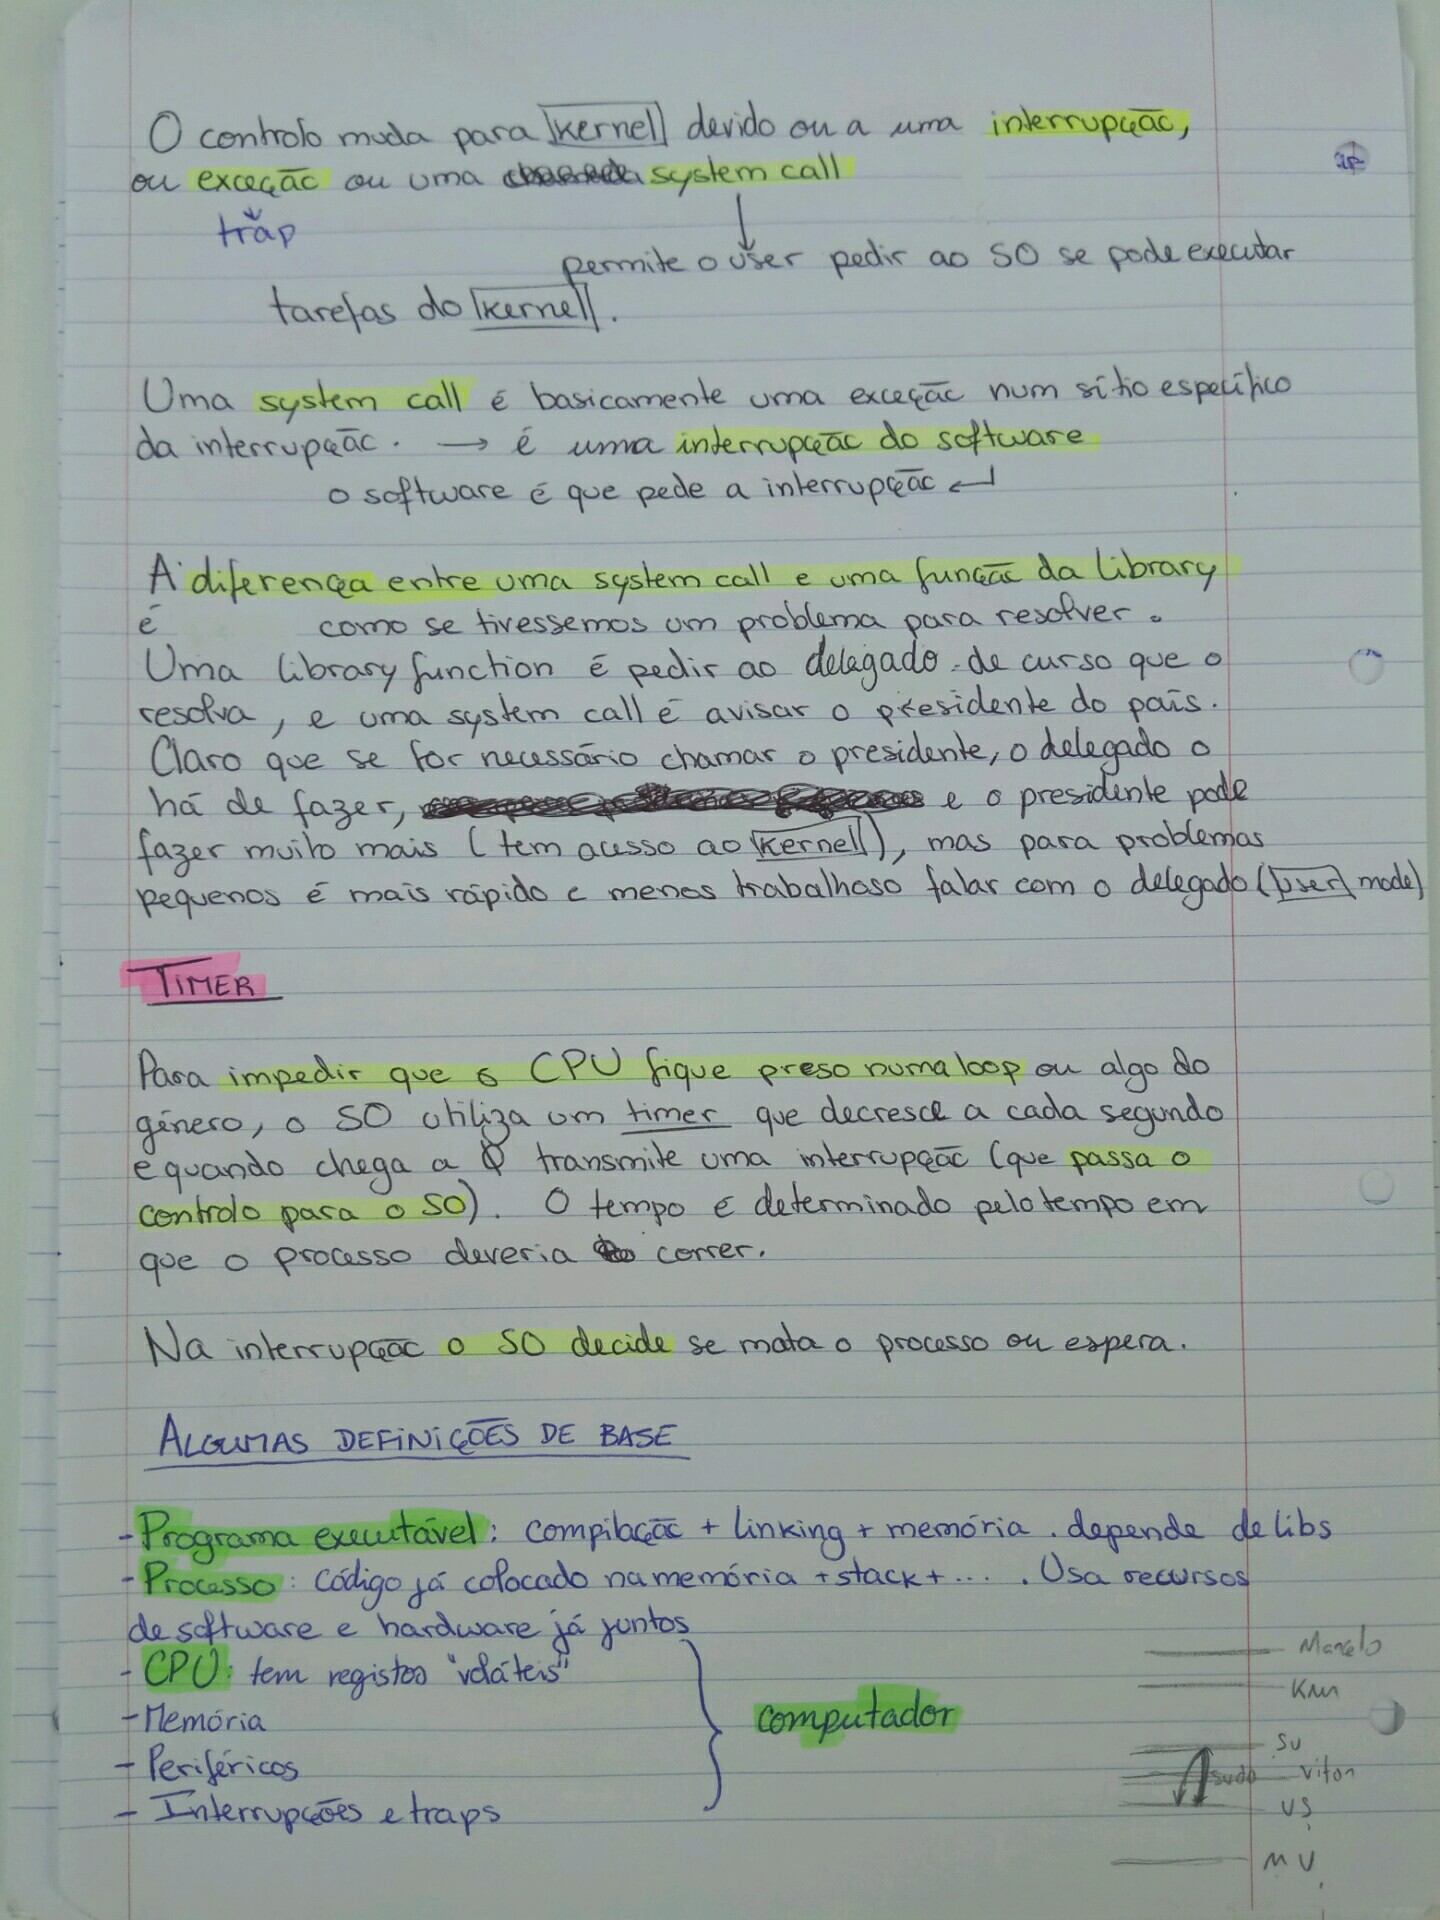 O controlo muda para kernel devido ou a uma interrupção,
ou exceção ou uma system call
trap
permite o user pedir ao SO se pode executar
tarefas do kernel.
Uma system call é basicamente uma exceção num sítio específico
da interrupção. → é uma interrupção do software
o software é que pede a interrupção ↵
A diferença entre uma system call e uma função da library
é como se tivessemos um problema para resolver.
Uma library function é pedir ao delegado de curso que o
resolva, e uma system call é avisar o presidente do país.
Claro que se for necessário chamar o presidente, o delegado o
há de fazer, e o presidente pode
fazer muito mais (tem acesso ao kernel), mas para problemas
pequenos é mais rápido e menos trabalhoso falar com o delegado (user mode)
TIMER
Para impedir que o CPU fique preso numa loop ou algo do
género, o SO utiliza um timer que decresce a cada segundo
e quando chega a 0 transmite uma interrupção (que passa o
controlo para o SO). O tempo é determinado pelo tempo em
que o processo deveria correr.
Na interrupção o SO decide se mata o processo ou espera.
ALGUMAS DEFINIÇÕES DE BASE
- Programa executável: compilação + linking + memória. depende de libs
- Processo: Código já colocado na memória + stack + .... Usa recursos
de software e hardware já juntos
- CPU: tem registos "voláteis"
- Memória
- Periféricos
- Interrupções e traps
computador
Marcelo
su
sudo
US
MV